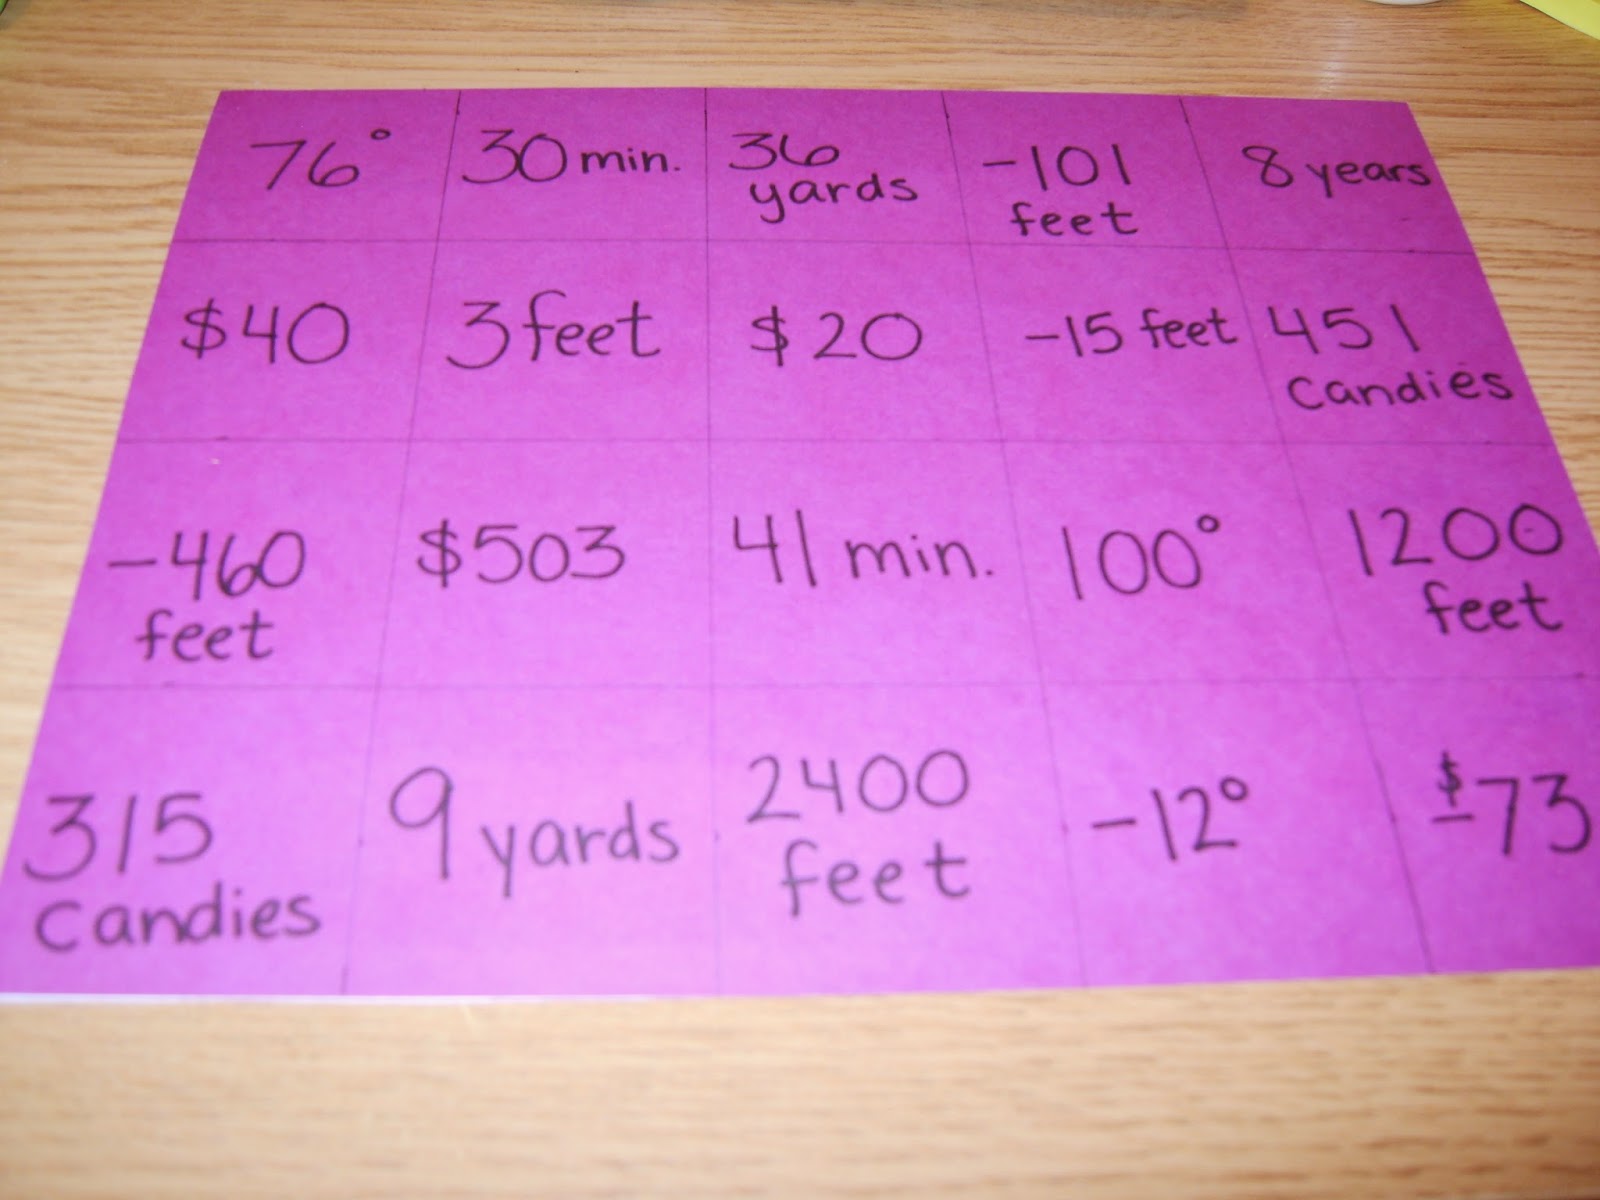 76° 30 min. 36 yards -101 feet 8 years
$40 3 feet $20 -15 feet 451 Candies
-460 feet $503 41 min. 100° 1200 feet
315 Candies 9 yards 2400 feet -12° -$73